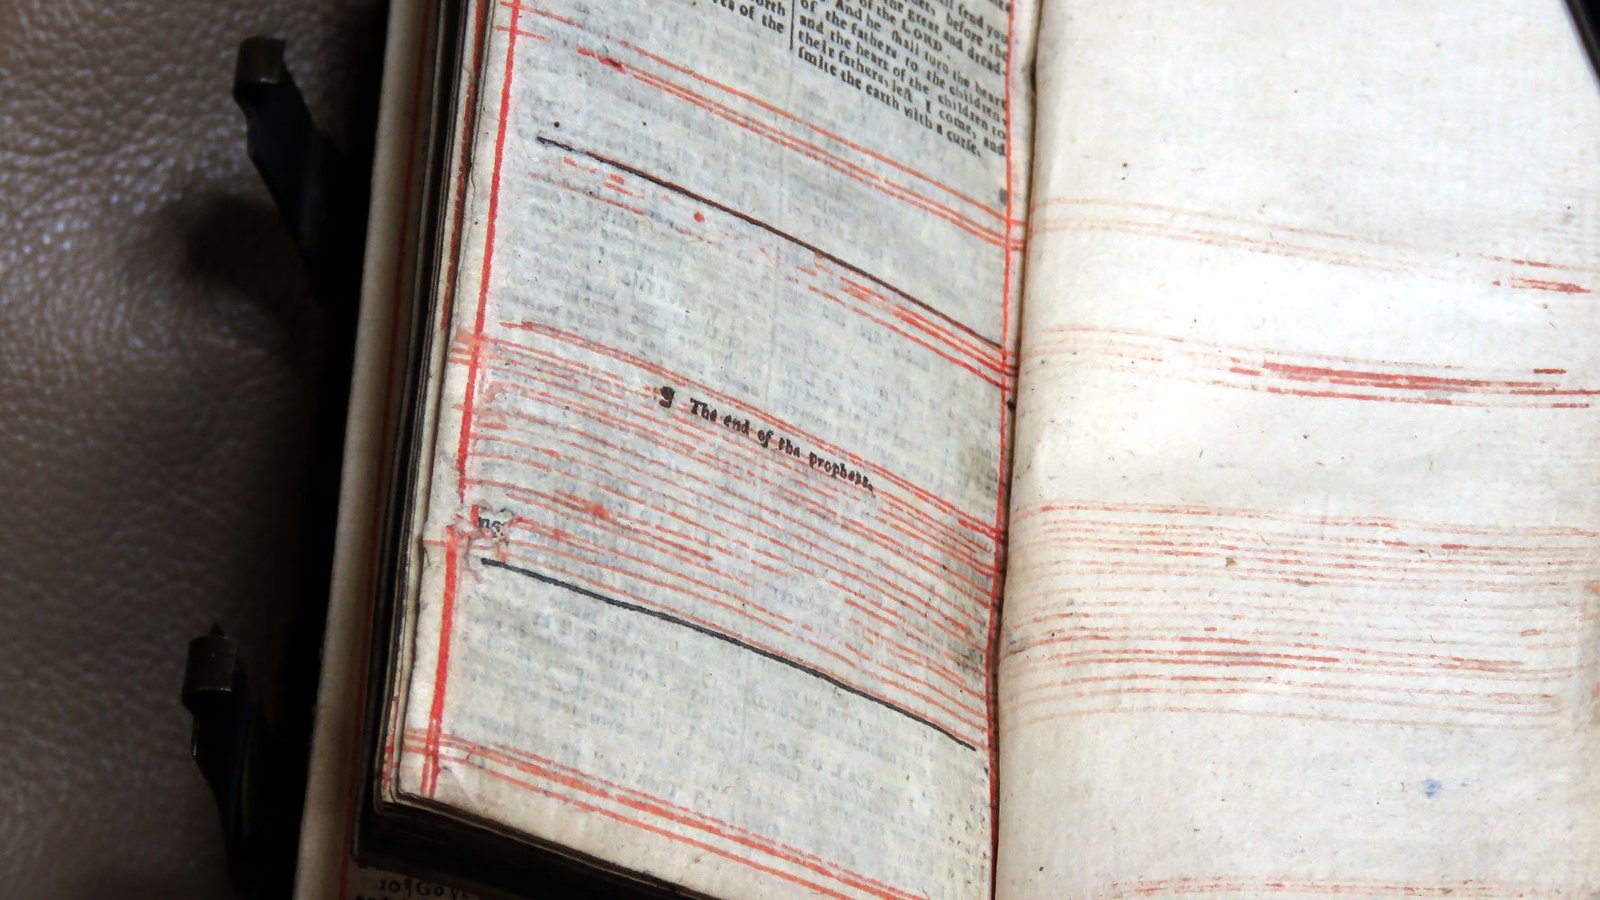 forth
ves of the
shall send you
before the
the great and dread-
of the LORD
And he shall turn the heart
of the fathers to the children,
and the heart of the children to
their fathers, lest I come, and
smite the earth with a curse.
The end of the prophets.